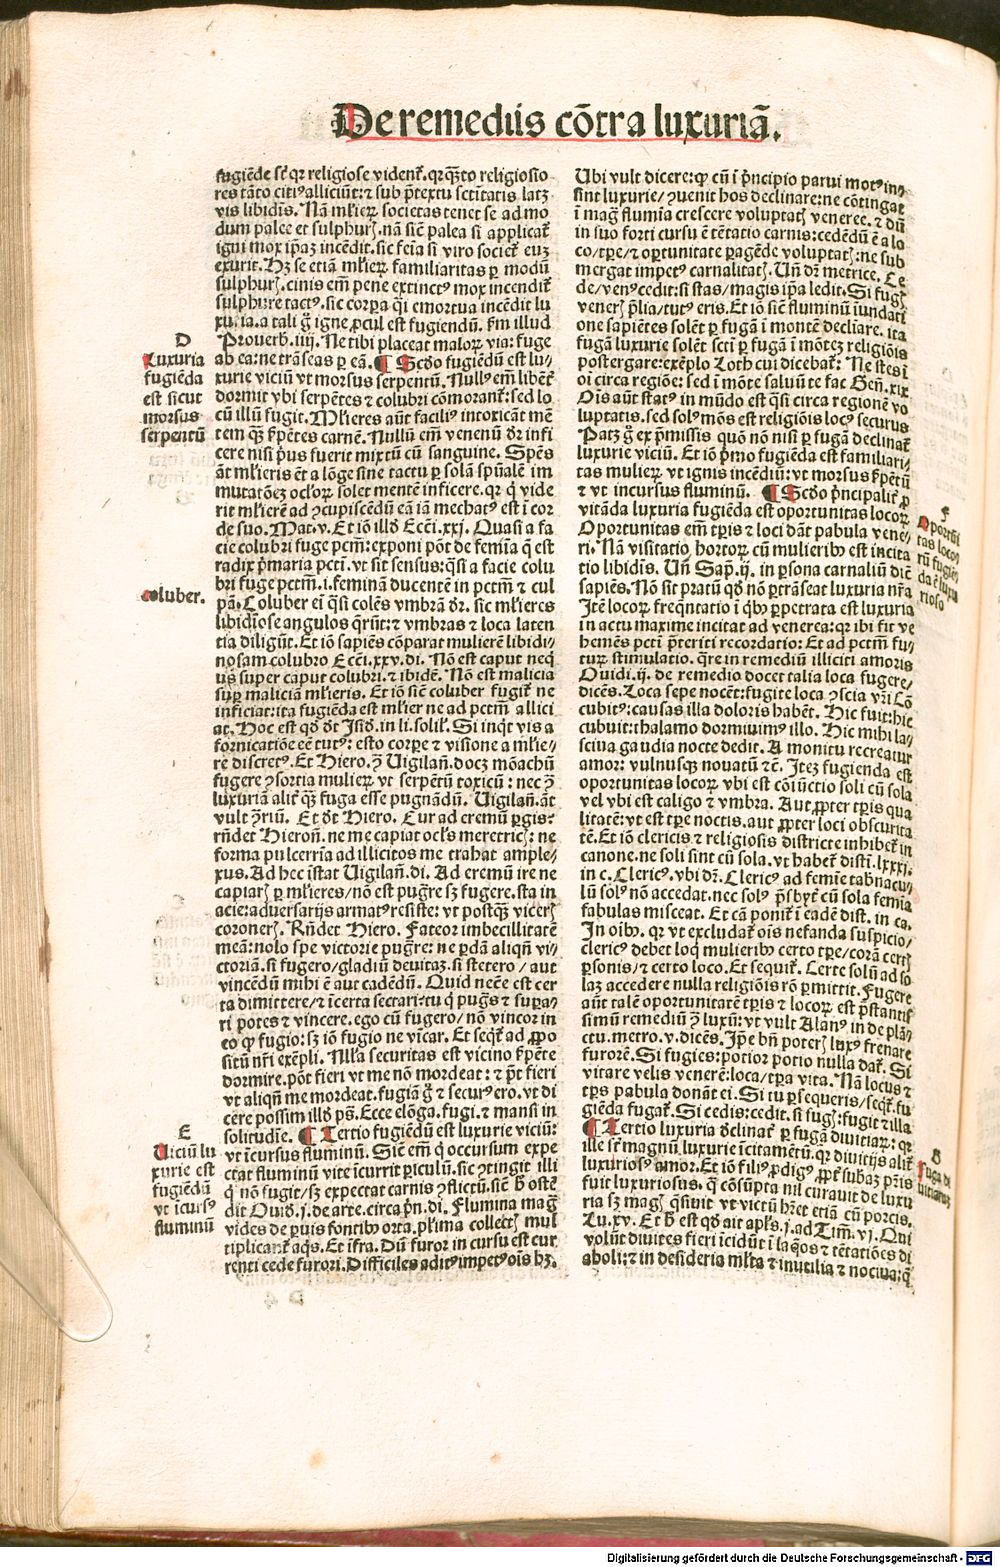 De remediis cōtra luxuriā.
fugiēde sꝫ qꝛ religiose vident᷑. qꝛ q̄ꝫto religiosio
res tāto citiꝰ alliciūt: ⁊ sub p̄textu sctitatis latꝫ
vis libidīs. Nā mĺieꝝ societas tenet se ad mo
dum palee et sulphurꝭ. nā siē palea si applicat᷑
igni mox ip̄aꝫ incēdit. sic feīa si viro societ᷑ euꝫ
exurit. Hꝫ se etiā mĺieꝝ familiaritas ꝑ modū
sulphurꝭ. cinis em̄ pene extinctꝰ mox incendit᷑
sulphure tactꝰ. sic corꝑa q̄i emortua incēdit lu
xuria. a tali ḡ igne ꝓcul est fugiendū. ẜm illud
Prouerb. iiij. Ne tibi placeat maloꝝ via: fuge
ab ea: ne trāseas ꝑ eā. ¶ Scd̄o fugiēdū est lu⸗
xurie viciū vt morsus serpentū. Nullꝰ em̄ libēt᷑
dormit vbi serpētes ⁊ colubri cōmorant᷑: sed lo
cū illū fugit. Mĺieres aūt faciliꝰ intoxicāt mē
tem q̄ꝫ ẜpētes carnē. Nullū em̄ venenū dꝛ infi
cere nisi pꝰus fuerit mixtū cū sanguine. Spēs
āt mĺieris ēt a lōge sine tactu ꝑ solā spūalē im
mutatōeꝫ oclōꝝ solet mentē inficere. qꝛ q̇ vide
rit mĺierē ad ꝯcupiscēdū eā iā mechatꝰ est ī cor
de suo. Mat. v. Et iō illd̄ Ecci. xxj. Quasi a fa
cie colubri fuge pctm̄: exponi pōt de femīa q̄ est
radix pmaria pcti. vt sit sensus: q̄si a facie colu
bri fuge pctm̄. i. feminā ducentē in pctm̄ ⁊ cul
pā. Coluber eī q̄si colēs vmbrā dꝛ. sic mĺieres
libidiōse angulos q̄rūt: ⁊ vmbras ⁊ loca laten
tia diligūt. Et iō sapiēs cōparat mulierē libidi⸗
nosam colubro Ecci. xxv. di. Nō est caput neq
us super caput colubri. ⁊ ibidē. Nō est malicia
suꝑ maliciā mĺieris. Et iō siē coluber fugit᷑ ne
inficiat: ita fugiēda est mĺier ne ad pctm̄ allici
at. Hoc est qd̄ dꝛ Isid. in li. solil. Si inq̇t vis a
fornicatiōe eē tutꝰ: esto corꝑe ⁊ visione a mĺie⸗
re discretꝰ. Et Hiero. ꝯ Vigilan. doceꝫ mōachū
fugere ꝯsortia mulieꝝ vt serpētū toxicū: nec ꝯ
luxuriā alit᷑ q̄ꝫ fuga esse pugnādū. Vigilan. āt
vult ꝯriū. Et dꝛ Hiero. Cur ad eremū ꝑgis:
rn̄det Hieroñ. ne me capiat oclꝰs meretricꝭ: ne
forma pulcerria ad illicitos me trahat amplex⸗
xus. Ad hec īstat Vigilan. di. Ad eremū ire ne
capiarꝭ ꝑ mĺieres/ nō est pugr̄e sꝫ fugere. sta in
acie: aduersarijs armatꝰ resiste: vt postq̄ꝫ vicerꝭ
coronerꝭ. Rn̄det Hiero. Fateor imbecillitatē
meā: nolo spe victorie pugr̄e: ne ꝑdā aliqn̄ vi⸗
ctoriā. si fugero/ gladiū deuitaꝫ. si stetero/ aut
vincēdū mihi ē aut cadēdū. Quid necēe est cer
ta dimittere/ ⁊ īcerta sectari: tu q̇ pugꝰs ⁊ supa⸗
ri potes ⁊ vincere. ego cū fugero/ nō vincor in
eo ꝙ fugio: sꝫ iō fugio ne vīcar. Et seq̄t᷑ ad ꝓpo
sitū nr̄i exēpli. Nĺla securitas est vicino ẜpēte
dormire. pōt fieri vt me nō mordeat: ⁊ p̄t fieri
vt aliqn̄ me mordeat. fugiā ḡ ⁊ securꝰ ero. vt di
cere possim illd̄ pꝰs. Ecce elōga. fugi. ⁊ mansi in
solitudīe. ¶ Tertio fugiēdū est luxurie viciū:
vt īcursus fluminū. Siē em̄ q̇ occursum expe
ctat fluminū vite īcurrit ꝑiculū. sic ꝯtingit illi
q̇ nō fugit/ sꝫ expectat carnis ꝯflictū. siē h̄ ostē
dit Ouid. j. de arte. circa pn̄. di. Flumina mag̅
vides de ꝑuis fontibꝰ orta. plima collectꝭ mul
tiplicant᷑ aq̄s. Et īfra. Dū furor in cursu est cur
renti cede furori. Difficiles aditꝰ impetꝰ oīs hꝫ.
D
Luxuria
fugiēda
est sicut
morsus
serpentū
coluber.
E
Viciū lu
xurie est
fugiēdū
vt īcursꝰ
fluminū
Ubi vult dicere: ꝙ cū ī pꝰncipio parui motꝰ in⸗
sint luxurie/ ꝯuenit hos declinare: ne cōtingat
ī mag̅ flumīa crescere voluptatꝭ veneree. ⁊ dū
in suo forti cursu ē tētatio carnis: cedēdū ē a lo
co/ tꝑe/ ⁊ oꝑtunitate ꝑagēde voluptatꝭ: ne sub
mergat impetꝰ carnalitatꝭ. Vn̄ dꝛ metrice. Ce
de/ venꝰ cedit: si stas/ magis ip̄a ledit. Si fugꝭ
venerꝭ p̄lia/ tutꝰ eris. Et iō siē fluminū īundati
one sapiētes solēt ꝑ fugā ī montē decliare. ita
fugā luxurie solēt scti ꝑ fugā ī mōteꝫ religiōis
postergare: exēplo Loth cui dicebat᷑: Ne stes ī
oi circa regiōe: sed ī mōte saluū te fac Geñ. xix
Oīs aūt statꝰ in mūdo est q̄si circa regionē vo
luptatis. sed solꝰ mōs est religiōis locꝰ securus
Patꝫ ḡ ex pꝰmissis quō nō nisi ꝑ fugā declinat᷑
luxurie viciū. Et iō pꝰmo fugiēda est familiari⸗
tas mulieꝝ vt ignis incēdiū: vt morsus ẜpētū
⁊ vt incursus fluminū. ¶ Scd̄o pꝰncipalit᷑ ꝓ
vitāda luxuria fugiēda est oportunitas locoꝝ
Oportunitas em̄ tꝑis ⁊ loci dāt pabula vene⸗
ri. Nā visitatio hortoꝝ cū mulieribꝰ est incita
tio libidīs. Vn̄ Sap̄. ij. in ꝑsona carnaliū dic̄
sapiēs. Nō sit pratū qd̄ nō ꝑtrāseat luxuria nr̄a
Itē locoꝝ freq̄ntatio ī q̇bꝰ ꝑpetrata est luxuria
in actu maxime incitat ad venerea: qꝛ ibi fit ve
hemēs pcti pꝰteriti recordatio: Et ad pctm̄ fu⸗
tuꝝ stimulatio. q̄re in remediū illiciti amoris
Ouidi. ij. de remedio docet talia loca fugere/
dicēs. Loca sepe nocēt: fugite loca ꝯscia vr̄i Cō
cubitꝰ: causas illa doloris habēt. Hic fuit: hic
cubuit: thalamo dormiuimꝰ illo. Hic mihi la⸗
sciua gaudia nocte dedit. A monitu recreatur
amor: vulnusqꝫ nouatū ⁊ē. Iteꝫ fugienda est
oportunitas locoꝝ vbi est cōiūctio soli cū sola
vel vbi est caligo ⁊ vmbra. Aut ꝓpter tꝑis qua
litatē: vt est tꝑe noctis. aut ꝓpter loci obscurita
tē. Et iō clericis ⁊ religiosis districte inhibet᷑ in
canone. ne soli sint cū sola. vt habet᷑ disti. lxxxj.
in c. Clericꝰ. vbi dꝛ. Clericꝰ ad femīe tabnacu⸗
lū solꝰ nō accedat. nec solꝰ pꝰsbyt᷑ cū sola femīa
fabulas misceat. Et cā ponit᷑ ī eadē dist. in ca.
In oibꝰ. qꝛ vt excludat᷑ oīs nefanda suspicio/
clericꝰ debet loq̇ mulieribꝰ certo tꝑe/ corā certꝭ
ꝑsonis/ ⁊ certo loco. Et sequit᷑. Certe solū ad so
laꝫ accedere nulla religiōis rō ꝑmittit. Fugere
aūt talē oportunitatē tꝑis ⁊ locoꝝ est pꝰstantis
simū remediū ꝯ luxū: vt vult Alanꝰ in de plā⸗
ctu. metro. v. dicēs. Ip̄e bn̄ poterꝭ luxꝰ frenare
furorē. Si fugies: potior potio nulla dat᷑. Si
vitare velis venerē: loca/ tꝑa vita. Nā locus ⁊
tꝑs pabula donāt ei. Si tu ꝑsequeris/ seq̄t᷑. fu
giēda fugat᷑. Si cedis: cedit. si fugꝭ: fugit ⁊ illa
¶ Tertio luxuria declinat᷑ ꝑ fugā diuitiaꝝ: qꝛ
ille sꝫ magnū luxurie īcitamētū. qꝛ diuitijs alit᷑
luxuriosꝰ amor. Et iō filiꝰ ꝓdigꝰ, ꝓpt᷑ subaꝫ pr̄is
fuit luxuriosus. q̄ cōsūpta nil curauit de luxu
ria sꝫ magꝭ q̄siuit vt victū hr̄et etiā cū porcis.
Lu. xv. Et h̄ est qd̄ ait apĺs. j. ad Tim. vj. Qui
volūt diuites fieri īcidūt ī laq̄os ⁊ tētatiōes di
aboli: ⁊ in desideria mĺta ⁊ inutilia ⁊ nociua: q̄
F
Oportūi
tas locoꝝ
rū fugiē⸗
da ē luxu
rioso
G
Fuga di
uitiaruꝫ
Digitalisierung gefördert durch die Deutsche Forschungsgemeinschaft - DFG